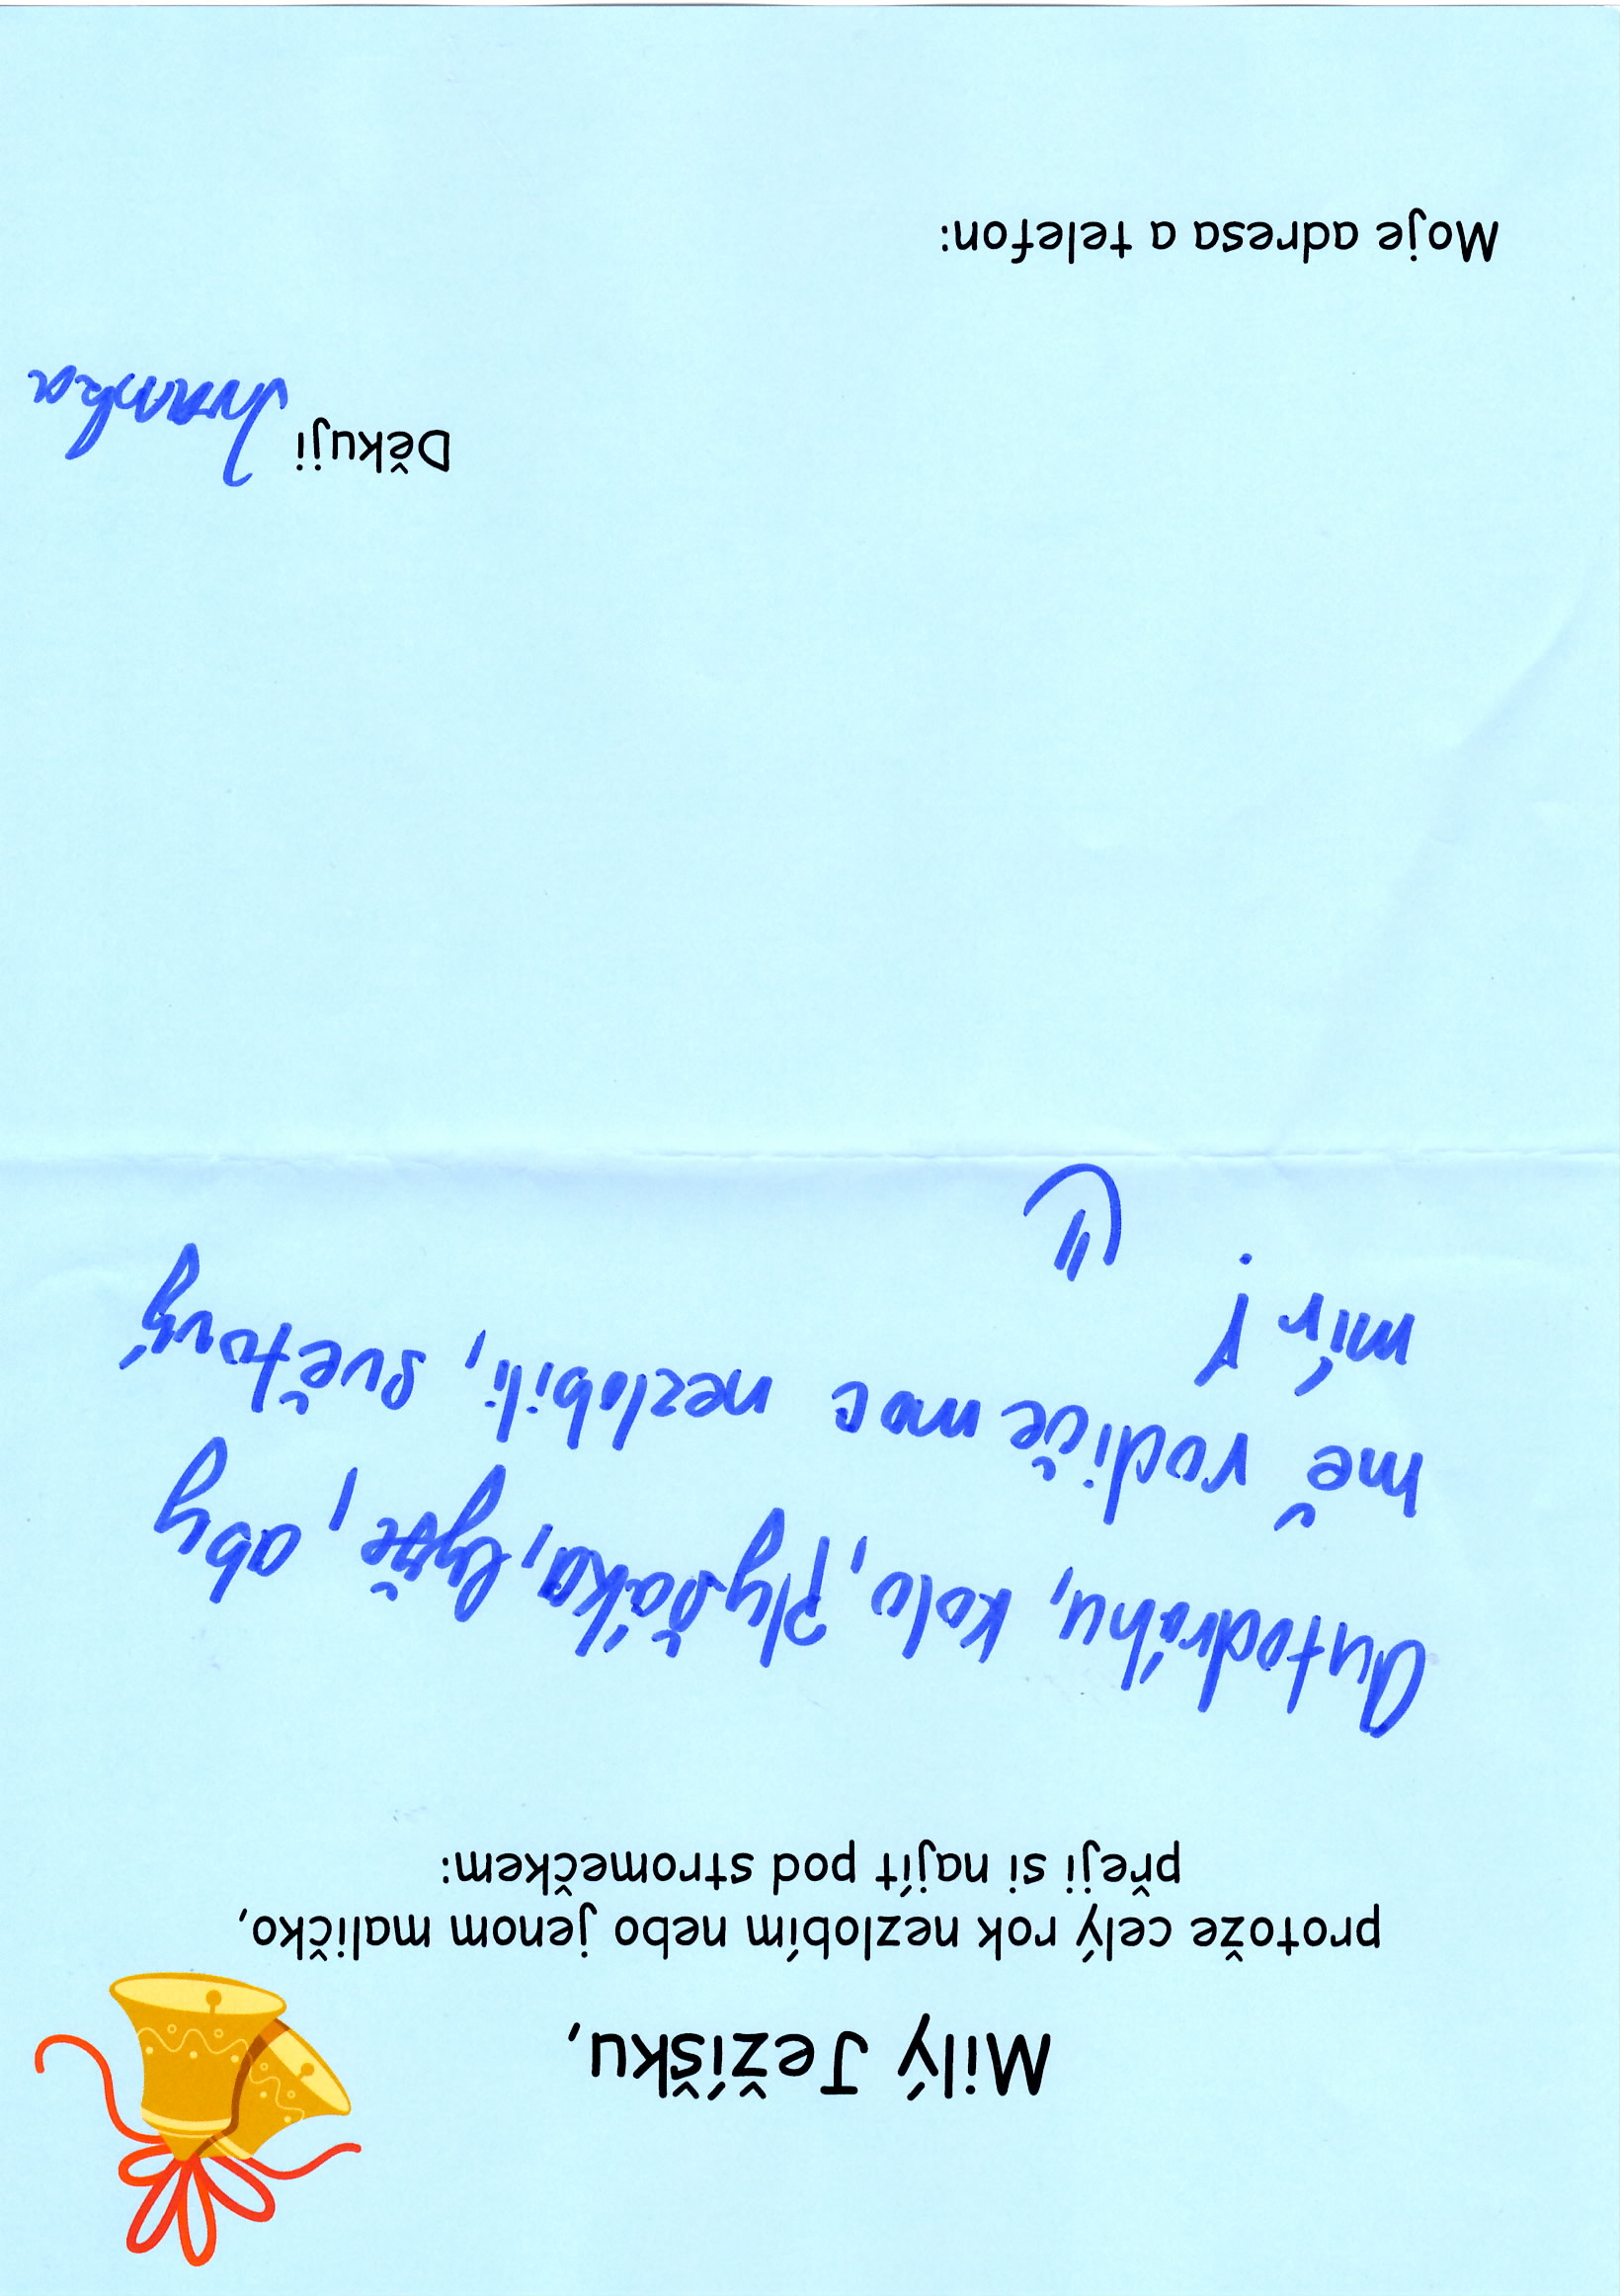 Milý Ježíšku,
protože celý rok nezlobím nebo jenom maličko,
přeji si najít pod stromečkem:
Autodráhu, kolo, Plyšáka, lyže, aby
mě rodiče moc nezlobili, světový
mír!
Děkuji Ivanka
Moje adresa a telefon: